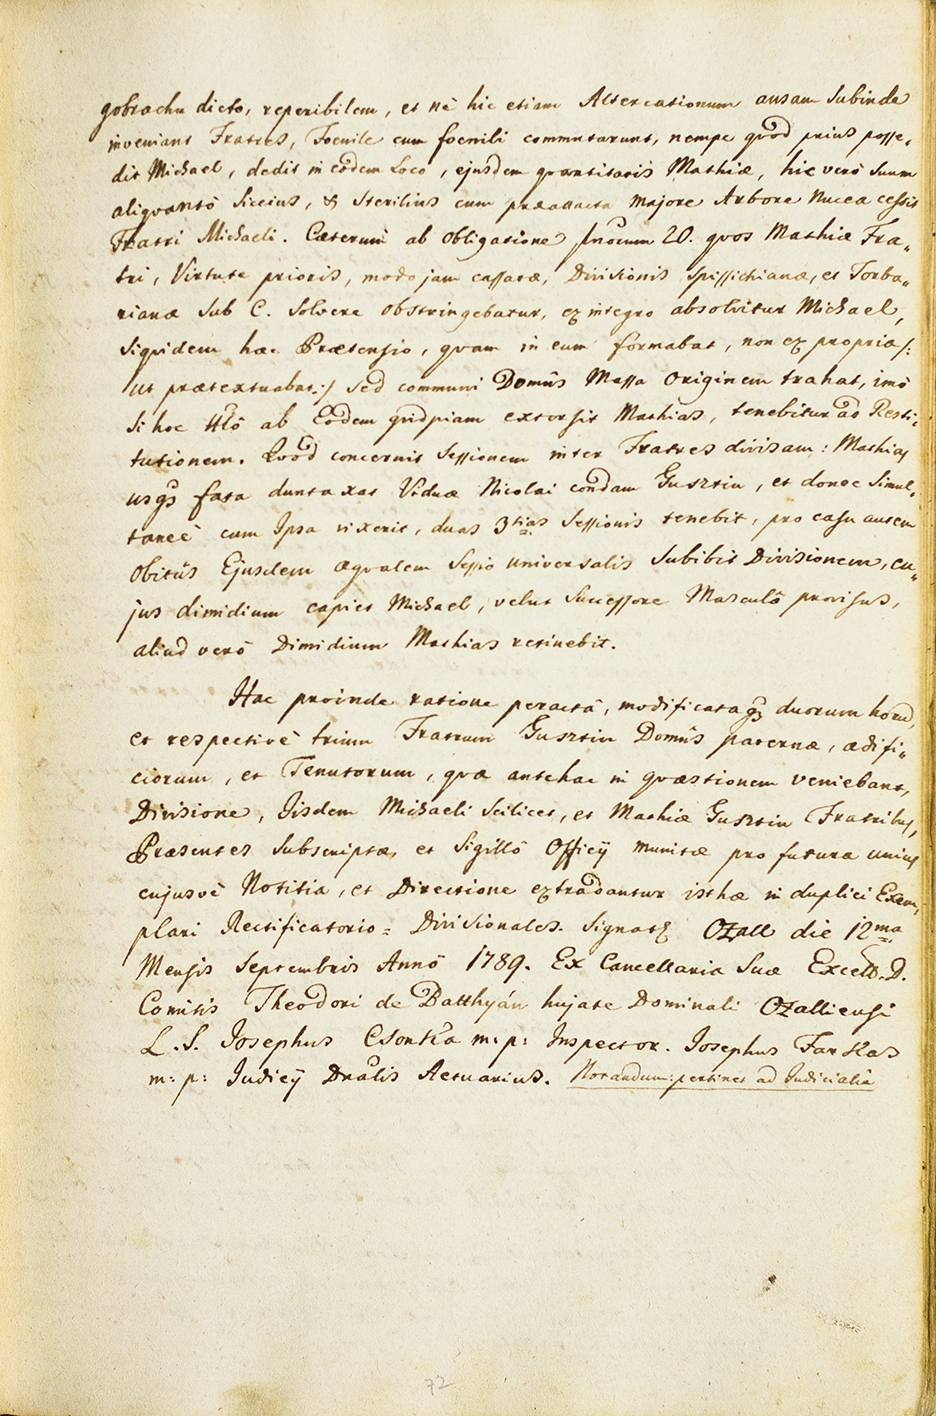 gobrachu dicto, reperibilem, et nè hic etiam Altercationum ansam Subinde
inveniant Fratres, Foenile cum foenili commutarunt, nempe quod prius posse,
dit Michael, dedit in eodem Loco, ejusdem quantitatis Mathiæ, hic verò suum
aliquantò Siccius, & Sterilius cum præadnata majore Arbore Nucea cessit
Fratri Michaeli. Cæterum ab obligatione fnorum 20. quos Mathiæ Fra„
tri, Virtute prioris, modo jam cassatæ, Divisionis Spissichianæ, et Torba„
rianæ Sub C. Solvere obstringebatur, ex integro absolvitur Michael,
Siquidem hæc Prætensio, quam in eum formabat, non ex propria /:
ut prætextuabat :/ Sed communi Domûs Massa originem trahat, imò
Si hoc ttlô ab Eodem quidpiam extorsit Mathias, tenebitur ad Resti„
tutionem. Quod concernit Sessionem inter Fratres divisam: Mathias
usq3 fata duntaxat Viduæ Nicolai condam Gusztin, et donec Simul„
taneè cum Ipsa vixerit, duas 3tias Sessionis tenebit, pro casu autem
obitûs Ejusdem æqualem Sessio universalis Subibit Divisionem, cu„
jus dimidium capiet Michael, velut Successore Masculô provisus,
aliud verò Dimidium Mathias retinebit.
Hac proinde ratione peractâ, modificataq3 duorum horum,
et respectivè trium Fratrum Gusztin Domûs paternæ, ædifi„
ciorum, et Tenutorum, quæ antehac in quæstionem veniebant,
Divisione, Iisdem Michaeli Scilicet, et Mathiæ Gusztin Fratribus,
Præsentes Subscriptæ, et Sigillô Officÿ munitæ pro futura unius
cujusvè Notitia, et Directione extradantur isthæ in duplici Exem,
plari Rectificatorio= Divisionales. Signat Ozall die 12ma
Mensis Septembris Annô 1789. Ex Cancellaria Suæ Excell. D.
Comitis Theodori de Batthyán hujate Dominali Ozalliensi
L. S. Josephus Csontka m: p: Inspector. Josephus Farkas
m: p: Judicÿ Dnalis Actuarius. Notandum: pertinet ad Judicialia
72